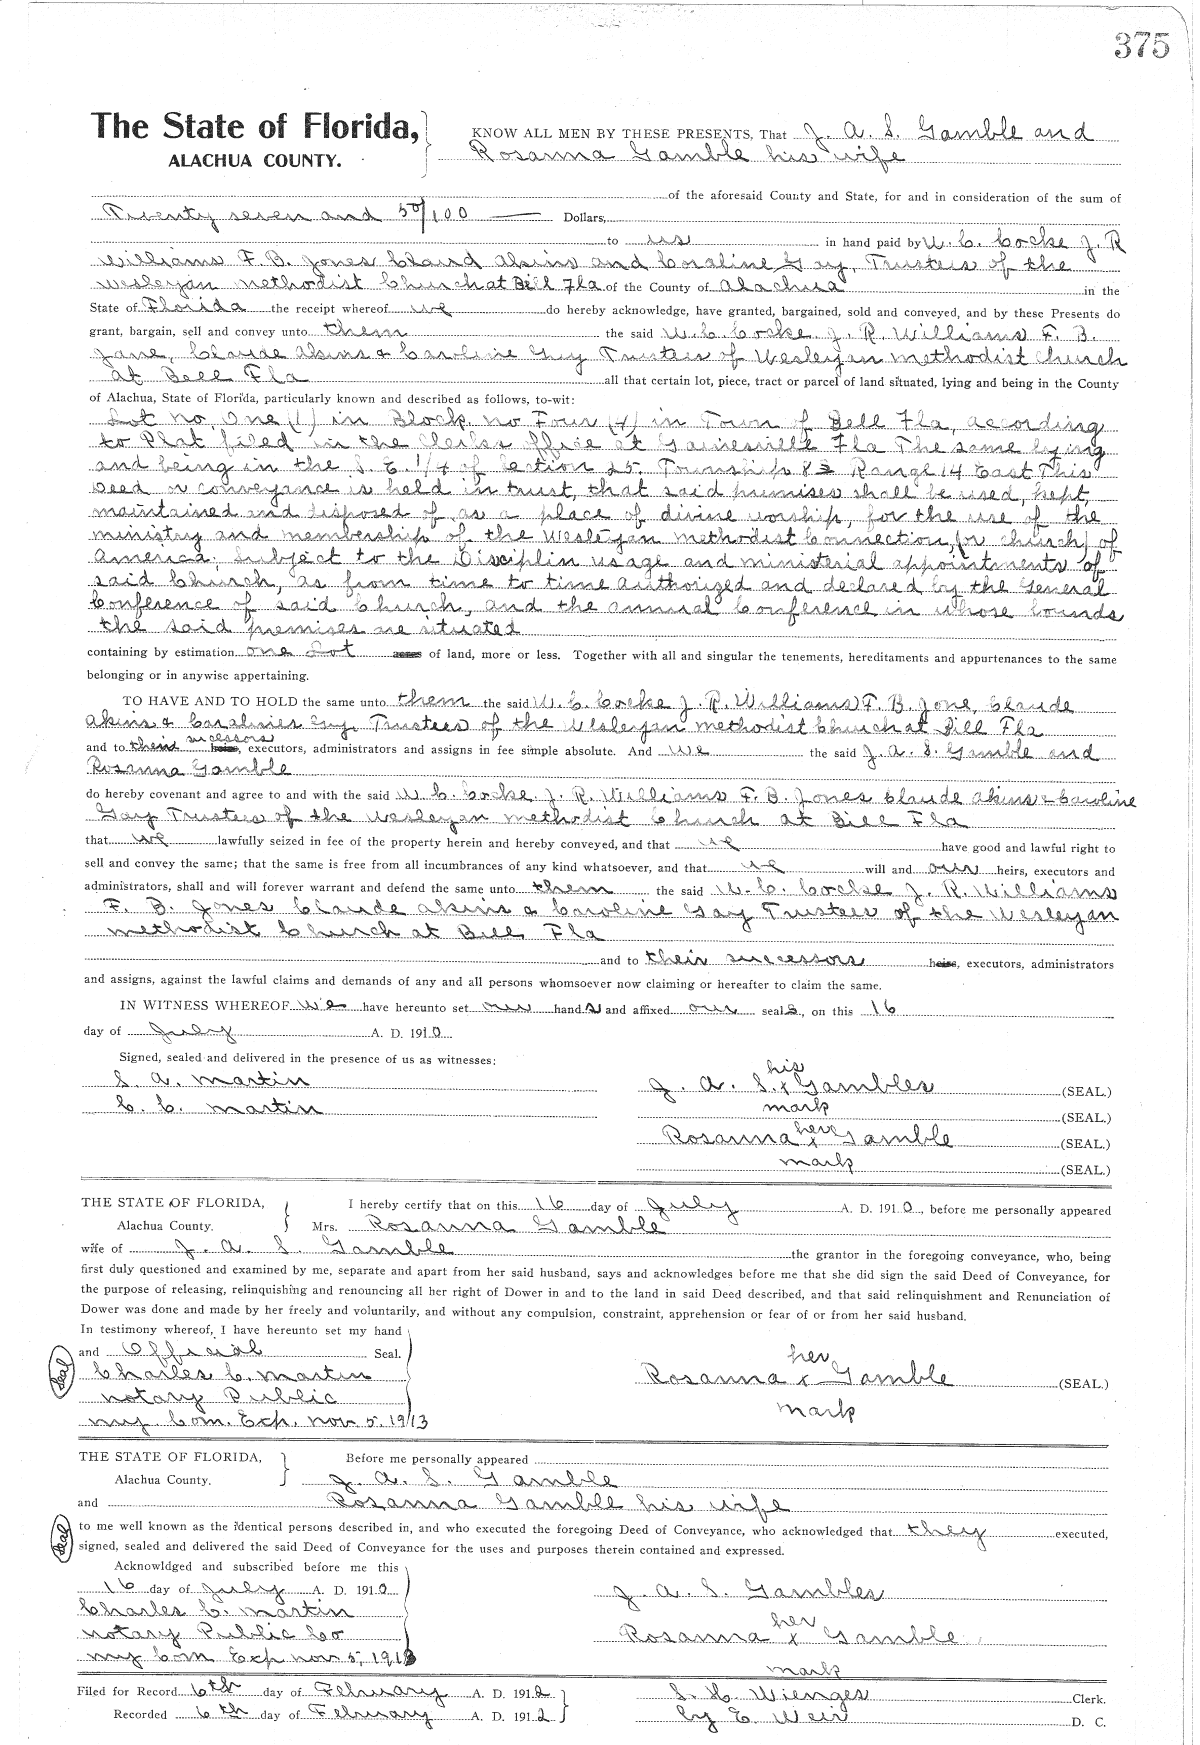 375
The State of Florida,
ALACHUA COUNTY.
KNOW ALL MEN BY THESE PRESENTS, That J. A. S. Gamble and
Rosanna Gamble his wife
of the aforesaid County and State, for and in consideration of the sum of
Twenty seven and 50/100 Dollars,
to us in hand paid by W. C. Cocke J. R
Williams F. B. Jones Claud Akins and Coraline Gay, Trustees of the
Wesleyan Methodist Church at Bell Fla of the County of Alachua in the
State of Florida the receipt whereof we do hereby acknowledge, have granted, bargained, sold and conveyed, and by these Presents do
grant, bargain, sell and convey unto them the said W. C. Cocke. J. R. Williams F. B.
Jone, Claude Akins & Caroline Guy Trustees of Wesleyan Methodist Church
at Bell Fla all that certain lot, piece, tract or parcel of land situated, lying and being in the County
of Alachua, State of Florida, particularly known and described as follows, to-wit:
Lot no. One (1) in Block no Four (4) in Town of Bell Fla, according
to Plat filed in the Clerks office at Gainesville Fla The same lying
and being in the S. E. 1/4 of Section 25. Township 8 Range 14 East This
Deed or conveyance is held in trust, that said premises shall be used, kept,
maintained and disposed of as a place of divine worship, for the use of the
ministry and membership of the Wesleyan Methodist Connection, (or church) of
America; Subject to the Disciplin usage and ministerial appointments of
said Church, as from time to time authorized and declared by the General
Conference of said Church, and the annual Conference in whose bounds
the said premises are situated
containing by estimation one Lot acres of land, more or less. Together with all and singular the tenements, hereditaments and appurtenances to the same
belonging or in anywise appertaining.
TO HAVE AND TO HOLD the same unto them the said W. C. Cocke J. R. Williams F. B. Jone, Claude
Akins & Caralines Guy, Trustees of the Wesleyan Methodist Church at Bill Fla
and to their sucessors heirs, executors, administrators and assigns in fee simple absolute. And we the said J. A. S. Gamble and
Rosanna Gamble
do hereby covenant and agree to and with the said W. C. Cocke. J. R. Williams F. B. Jones Claude Akins & Caroline
Gay Trustees of the Wesleyan Methodist Church at Bill Fla
that we lawfully seized in fee of the property herein and hereby conveyed, and that we have good and lawful right to
sell and convey the same; that the same is free from all incumbrances of any kind whatsoever, and that we will and our heirs, executors and
administrators, shall and will forever warrant and defend the same unto them the said W. C. Cocke J. R. Williams
F. B. Jones Claude Akins & Caroline Gay Trustees of the Wesleyan
Methodist Church at Bell Fla
and to their successors heirs, executors, administrators
and assigns, against the lawful claims and demands of any and all persons whomsoever now claiming or hereafter to claim the same.
IN WITNESS WHEREOF we have hereunto set our hands and affixed our seals, on this 16
day of July A. D. 1910
Signed, sealed and delivered in the presence of us as witnesses:
S. A. Martin
C. C. Martin
his
J. A. S. x Gambles (SEAL.)
mark (SEAL.)
her
Rosanna x Gamble (SEAL.)
mark (SEAL.)
THE STATE OF FLORIDA,
Alachua County.
I hereby certify that on this 16 day of July A. D. 1910, before me personally appeared
Mrs. Rosanna Gamble
wife of J. A. S. Gamble the grantor in the foregoing conveyance, who, being
first duly questioned and examined by me, separate and apart from her said husband, says and acknowledges before me that she did sign the said Deed of Conveyance, for
the purpose of releasing, relinquishing and renouncing all her right of Dower in and to the land in said Deed described, and that said relinquishment and Renunciation of
Dower was done and made by her freely and voluntarily, and without any compulsion, constraint, apprehension or fear of or from her said husband.
In testimony whereof, I have hereunto set my hand
and Official Seal.
Seal
Charles C. Martin
Notary Public
My Com. Exp. Nov 5. 1913
her
Rosanna x Gamble (SEAL.)
mark
THE STATE OF FLORIDA,
Alachua County.
Before me personally appeared
J. A. S. Gamble
and Rosanna Gamble his wife
Seal
to me well known as the identical persons described in, and who executed the foregoing Deed of Conveyance, who acknowledged that they executed,
signed, sealed and delivered the said Deed of Conveyance for the uses and purposes therein contained and expressed.
Acknowldged and subscribed before me this
16 day of July A. D. 1910
Charles C. Martin
Notary Public Co
My Com Exp Nov 5, 1913
J. A. S. Gambles
her
Rosanna x Gamble
mark
Filed for Record 6th day of February A. D. 1912
Recorded 6th day of February A. D. 1912
S. H. Wienges Clerk.
by E. Weir D. C.